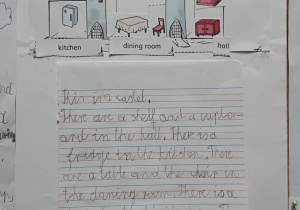 kitchen
dining room
hall
This is a castel.
There are a shelf and a cupbo-
ard in the hall. Ther is a
fridge in the kitchen. Ther
are a table and the chair in
the dining room. There is a